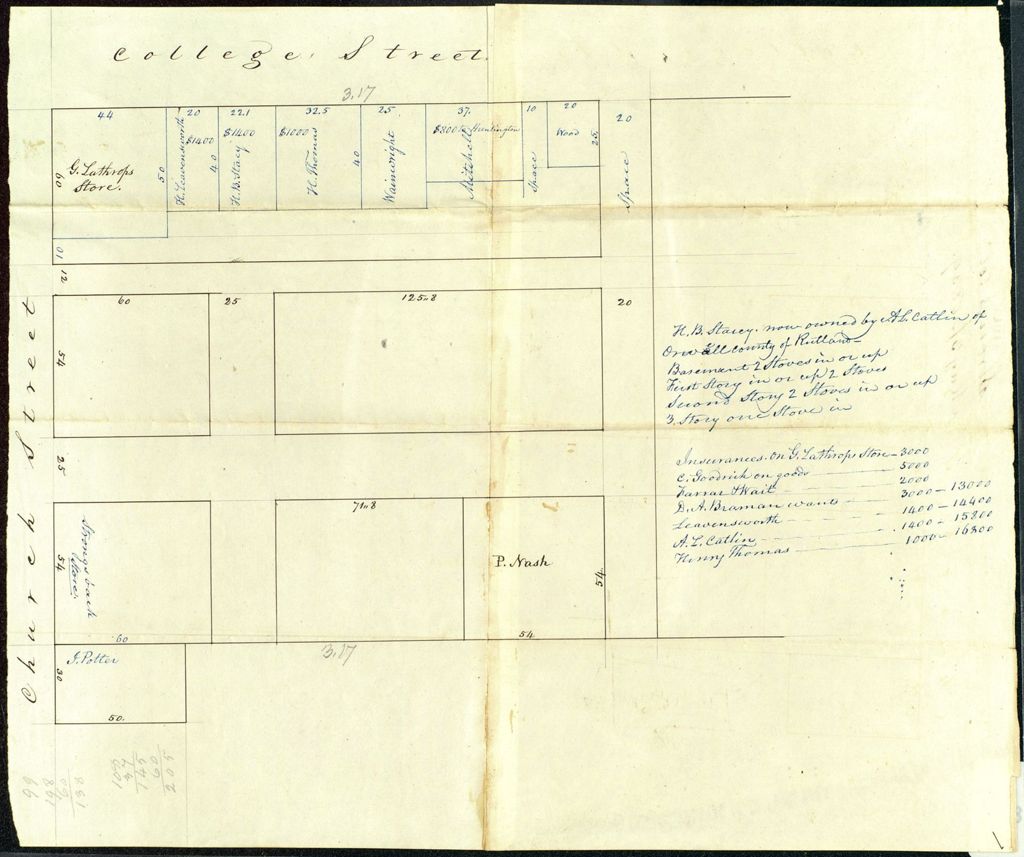 College Street
3.17
44
20
22.1
32.5
25
37.
10
20
20
$1400
$1400
$1000
$800 to Huntington
Wood
25
G. Lathrops
Store.
60
50
H. Leavensworth
40
H. B. Stacy
H. Thomas
40
Wainwright
Mitchell
Space
Space
10
12
60
25
125.8
20
54
Church Street
25
H. B. Stacey. now owned by A L. Catlin of
Orwell county of Rutland
Basement 2 Stoves in or up
First Story in or up 2 Stoves
Second Story 2 Stoves in or up
3. Story one Stove in
Insurances. on G. Lathrops Store - 3000
C. Goodrich on goods 5000
Farrar & Wait 2000
D. A. Braman want 3000 - 13000
Leavensworth 1400 - 14400
A. L. Catlin 1400 - 15800
Henry Thomas 1000 - 16800
71.8
Strongs back
Store.
54
P. Nash
54.
60
54
3.17
J. Potter
30
50.
145
60
205
198
66